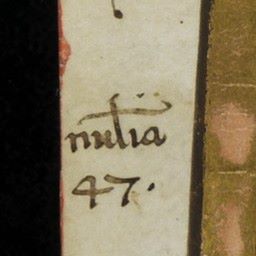 nulia
47.